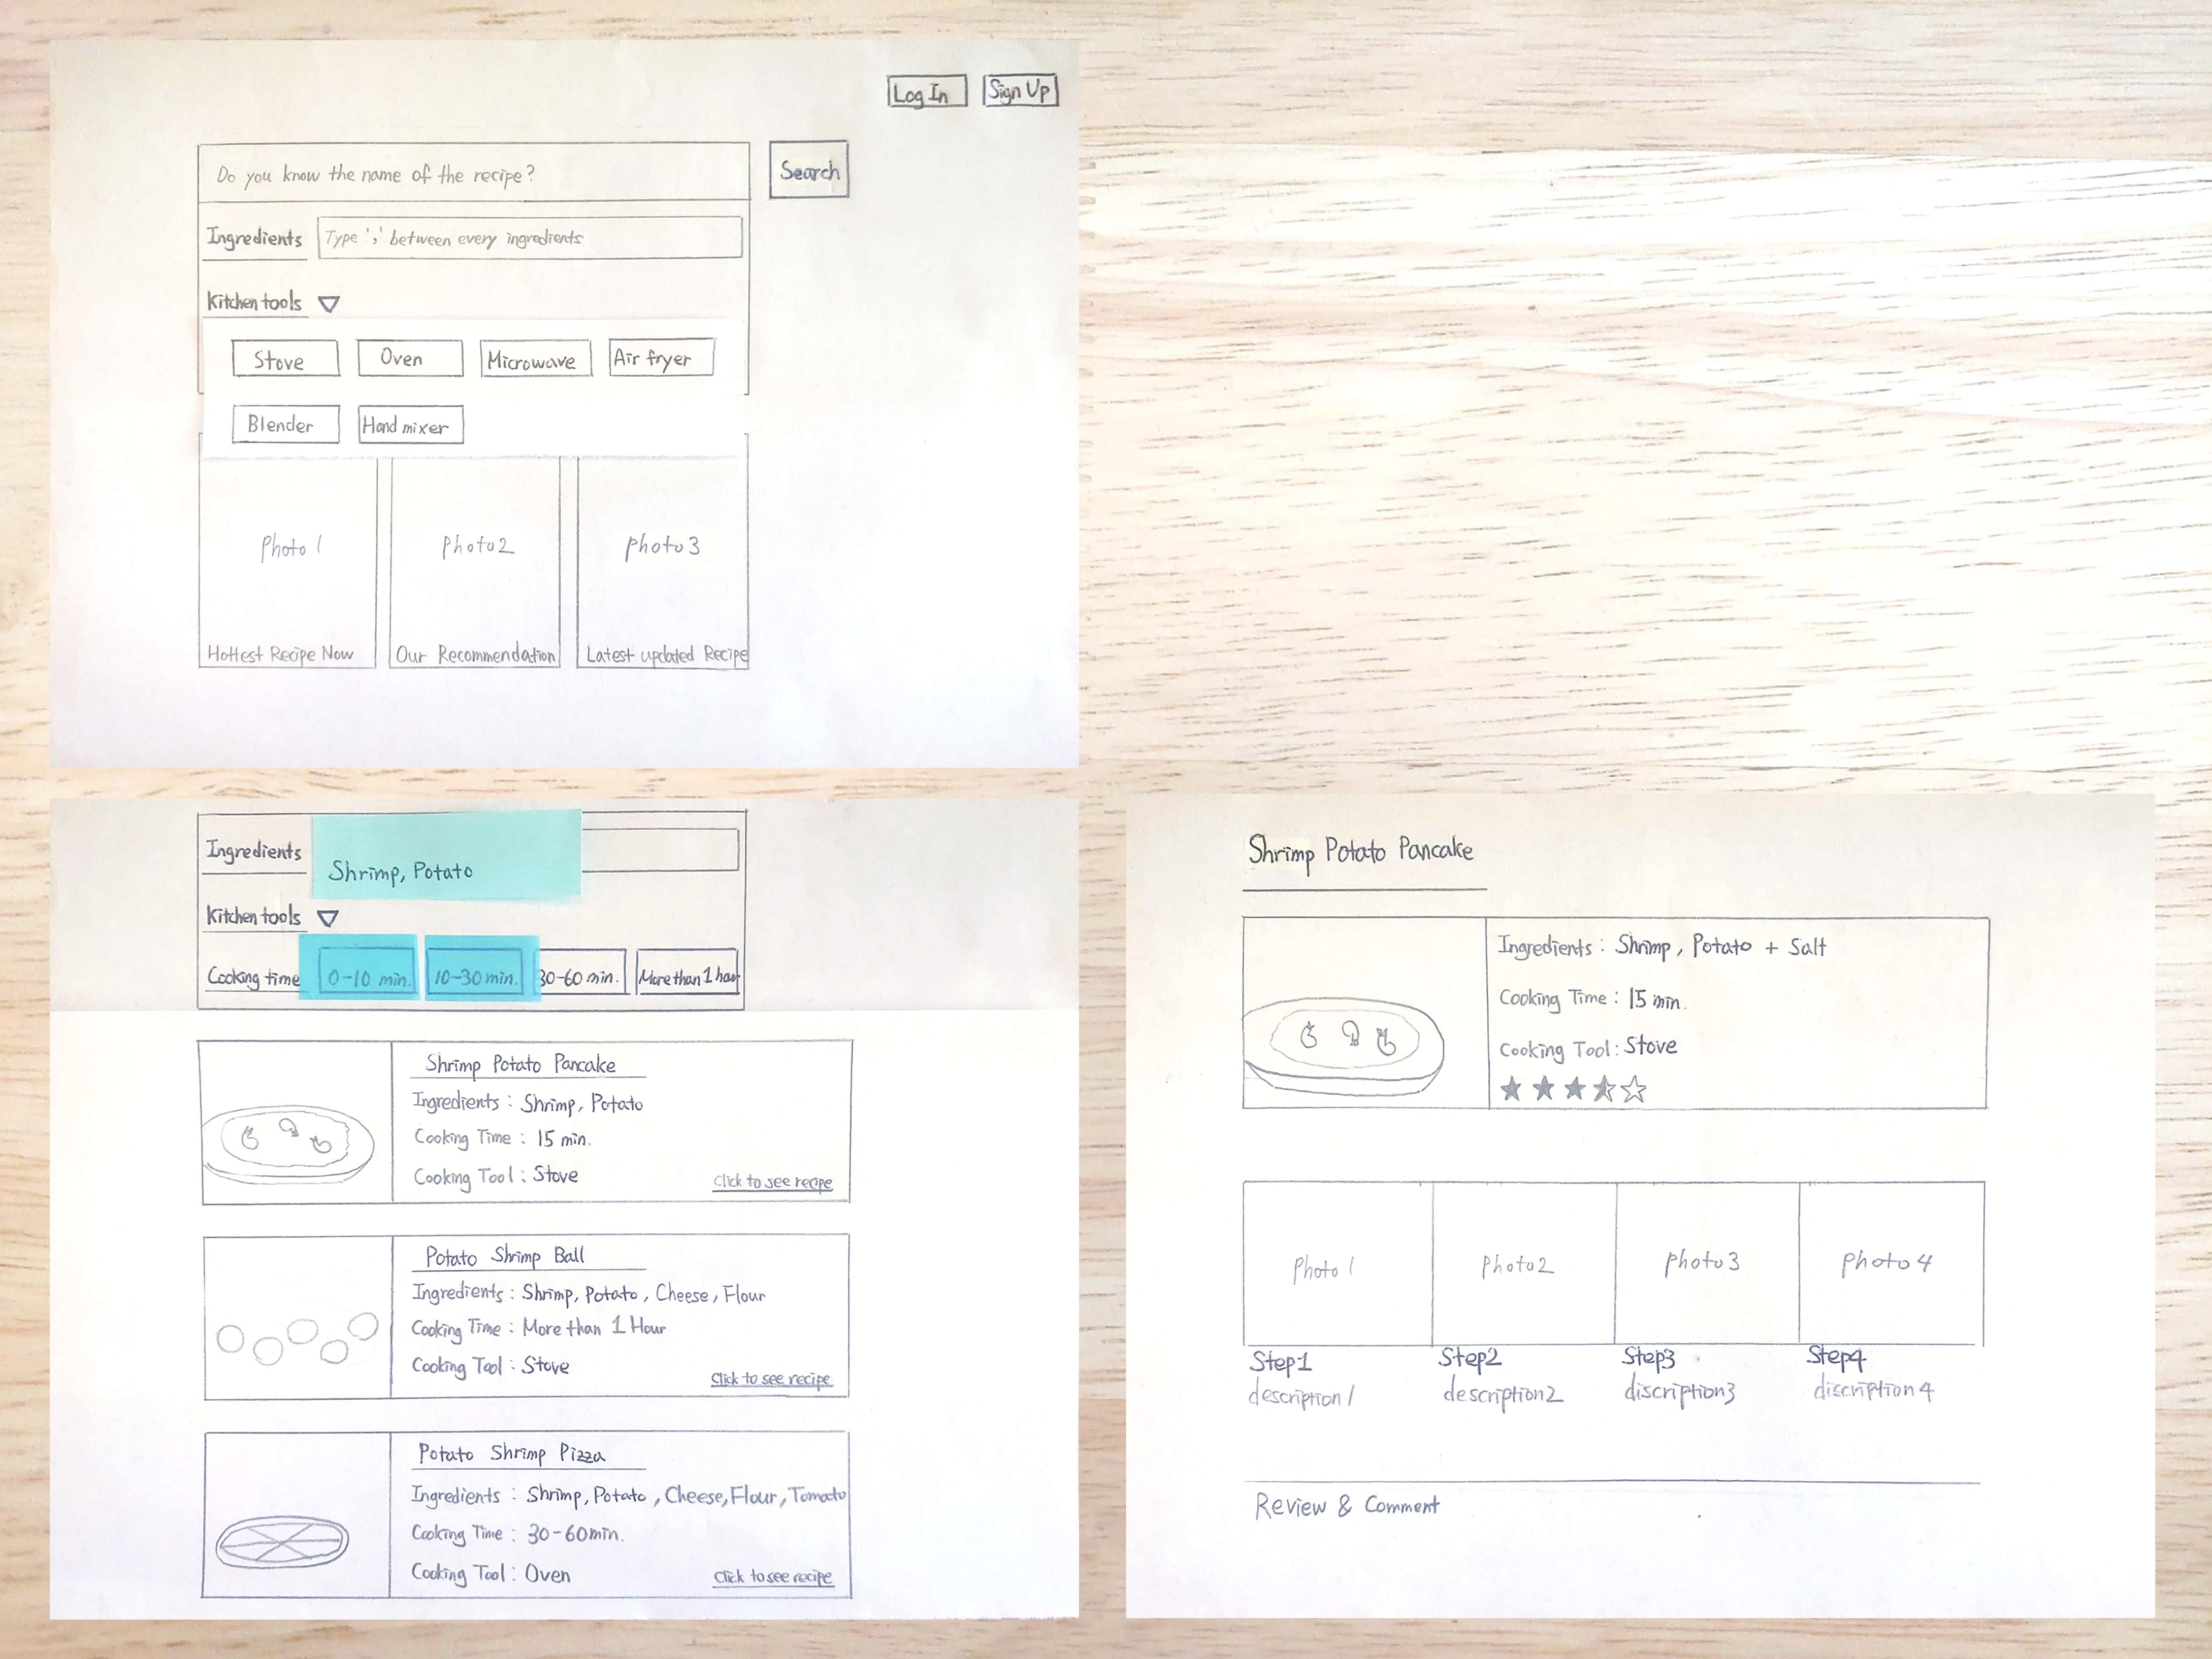 Log In
Sign Up
Do you know the name of the recipe?
Search
Ingredients
Type ',' between every ingredients
Kitchen tools
Stove
Oven
Microwave
Air fryer
Blender
Hand mixer
Photo 1
Photo2
photo3
Hottest Recipe Now
Our Recommendation
Latest updated Recipe
Ingredients
Shrimp, Potato
Kitchen tools
Cooking time
0-10 min.
10-30 min.
30-60 min.
More than 1 hour
Shrimp Potato Pancake
Ingredients : Shrimp, Potato
Cooking Time : 15 min.
Cooking Tool : Stove
Click to see recipe
Potato Shrimp Ball
Ingredients : Shrimp, Potato, Cheese, Flour
Cooking Time : More than 1 Hour
Cooking Tool : Stove
Click to see recipe
Potato Shrimp Pizza
Ingredients : Shrimp, Potato, Cheese, Flour, Tomato
Cooking Time : 30-60min.
Cooking Tool : Oven
Click to see recipe
Shrimp Potato Pancake
Ingredients : Shrimp, Potato + Salt
Cooking Time : 15 min.
Cooking Tool : Stove
Photo 1
Photo2
photo3
photo 4
Step1
description1
Step2
description2
Step3
discription3
Step4
discription4
Review & Comment